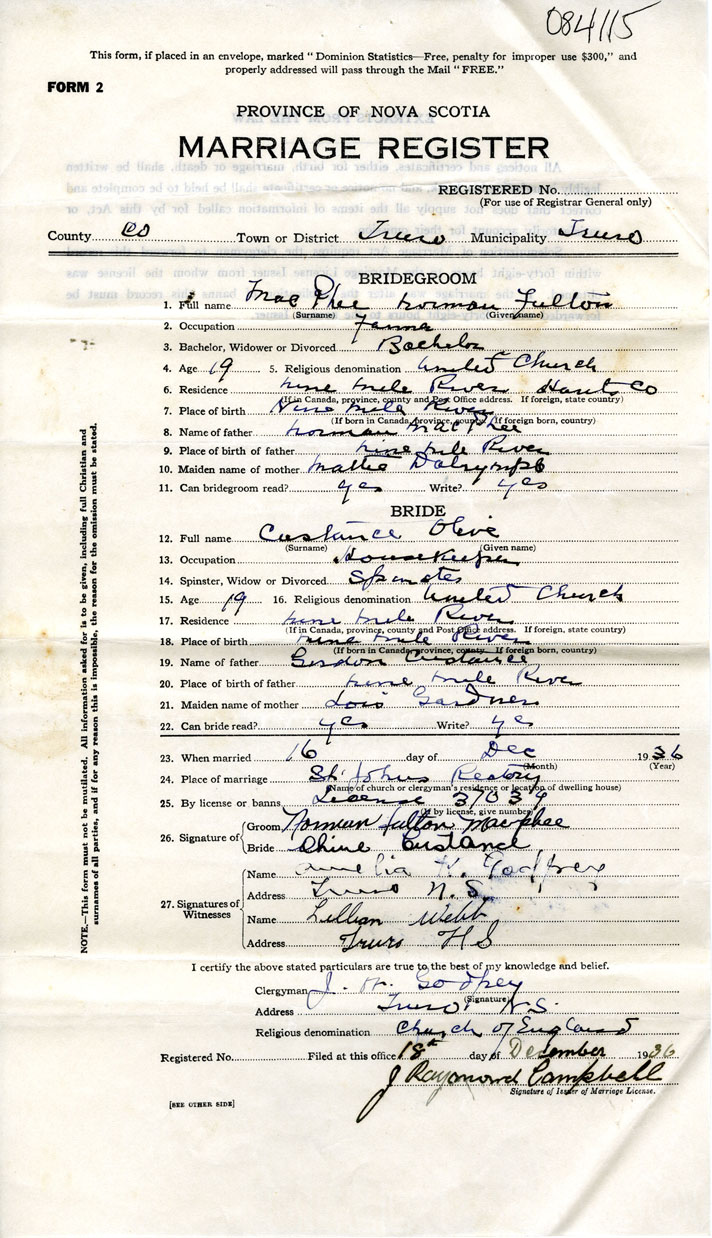 084115
This form, if placed in an envelope, marked "Dominion Statistics—Free, penalty for improper use $300," and
properly addressed will pass through the Mail "FREE."
FORM 2
PROVINCE OF NOVA SCOTIA
MARRIAGE REGISTER
REGISTERED No.
(For use of Registrar General only)
County Town or District Truro Municipality Truro
BRIDEGROOM
1. Full name MacPhee Norman Fulton
(Surname) (Given name)
2. Occupation Farmer
3. Bachelor, Widower or Divorced Bachelor
4. Age 19 5. Religious denomination United Church
6. Residence Nine Mile River Hants Co
(If in Canada, province, county and Post Office address. If foreign, state country)
7. Place of birth Nine Mile River
(If born in Canada, province, county. If foreign born, country)
8. Name of father Norman MacPhee
9. Place of birth of father Nine Mile River
10. Maiden name of mother Mattie Dalrymple
11. Can bridegroom read? yes Write? yes
BRIDE
12. Full name Custance Olive
(Surname) (Given name)
13. Occupation Housekeeper
14. Spinster, Widow or Divorced Spinster
15. Age 19 16. Religious denomination United Church
17. Residence Nine Mile River
(If in Canada, province, county and Post Office address. If foreign, state country)
18. Place of birth Nine Mile River
(If born in Canada, province, county. If foreign born, country)
19. Name of father Gordon Custance
20. Place of birth of father Nine Mile River
21. Maiden name of mother Lois Gardner
22. Can bride read? yes Write? yes
23. When married 16 day of Dec 1936
(Month) (Year)
24. Place of marriage St Johns Rectory
(Name of church or clergyman's residence or location of dwelling house)
25. By license or banns License 31039
(If by license, give number)
26. Signature of
Groom Norman Fulton Macphee
Bride Olive Custance
27. Signatures of Witnesses
Name Amelia H. Godfrey
Address Truro N.S.
Name Lillian Webb
Address Truro N S
I certify the above stated particulars are true to the best of my knowledge and belief.
Clergyman J. W. Godfrey
(Signature)
Address Truro N.S.
Religious denomination Church of England
Registered No. Filed at this office 18th day of December 1936
J Raymond Campbell
Signature of Issuer of Marriage License.
[SEE OTHER SIDE]
NOTE.—This form must not be mutilated. All information asked for is to be given, including full Christian and
surnames of all parties, and if for any reason this is impossible, the reason for the omission must be stated.